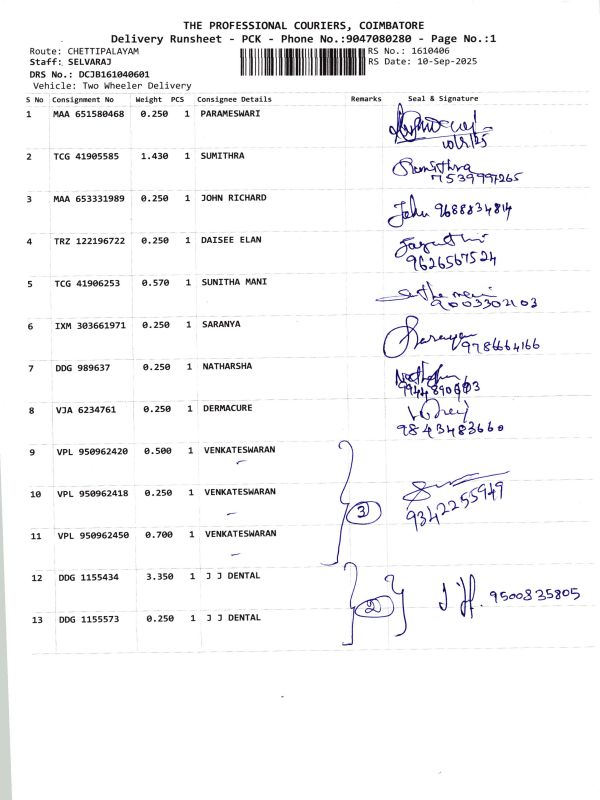 THE PROFESSIONAL COURIERS, COIMBATORE
Delivery Runsheet - PCK - Phone No.:9047080280 - Page No.:1
Route: CHETTIPALAYAM RS No.: 1610406
Staff: SELVARAJ RS Date: 10-Sep-2025
DRS No.: DCJB161040601
Vehicle: Two Wheeler Delivery
S No Consignment No Weight PCS Consignee Details Remarks Seal & Signature
1 MAA 651580468 0.250 1 PARAMESWARI
10/9/25
2 TCG 41905585 1.430 1 SUMITHRA Sumithra
7539997265
3 MAA 653331989 0.250 1 JOHN RICHARD John 9688834814
4 TRZ 122196722 0.250 1 DAISEE ELAN
9626567524
5 TCG 41906253 0.570 1 SUNITHA MANI
9003302103
6 IXM 303661971 0.250 1 SARANYA Saranya
9786664166
7 DDG 989637 0.250 1 NATHARSHA
8 VJA 6234761 0.250 1 DERMACURE
9843483660
9 VPL 950962420 0.500 1 VENKATESWARAN
10 VPL 950962418 0.250 1 VENKATESWARAN
3 9342255949
11 VPL 950962450 0.700 1 VENKATESWARAN
12 DDG 1155434 3.350 1 J J DENTAL
2 9500835805
13 DDG 1155573 0.250 1 J J DENTAL